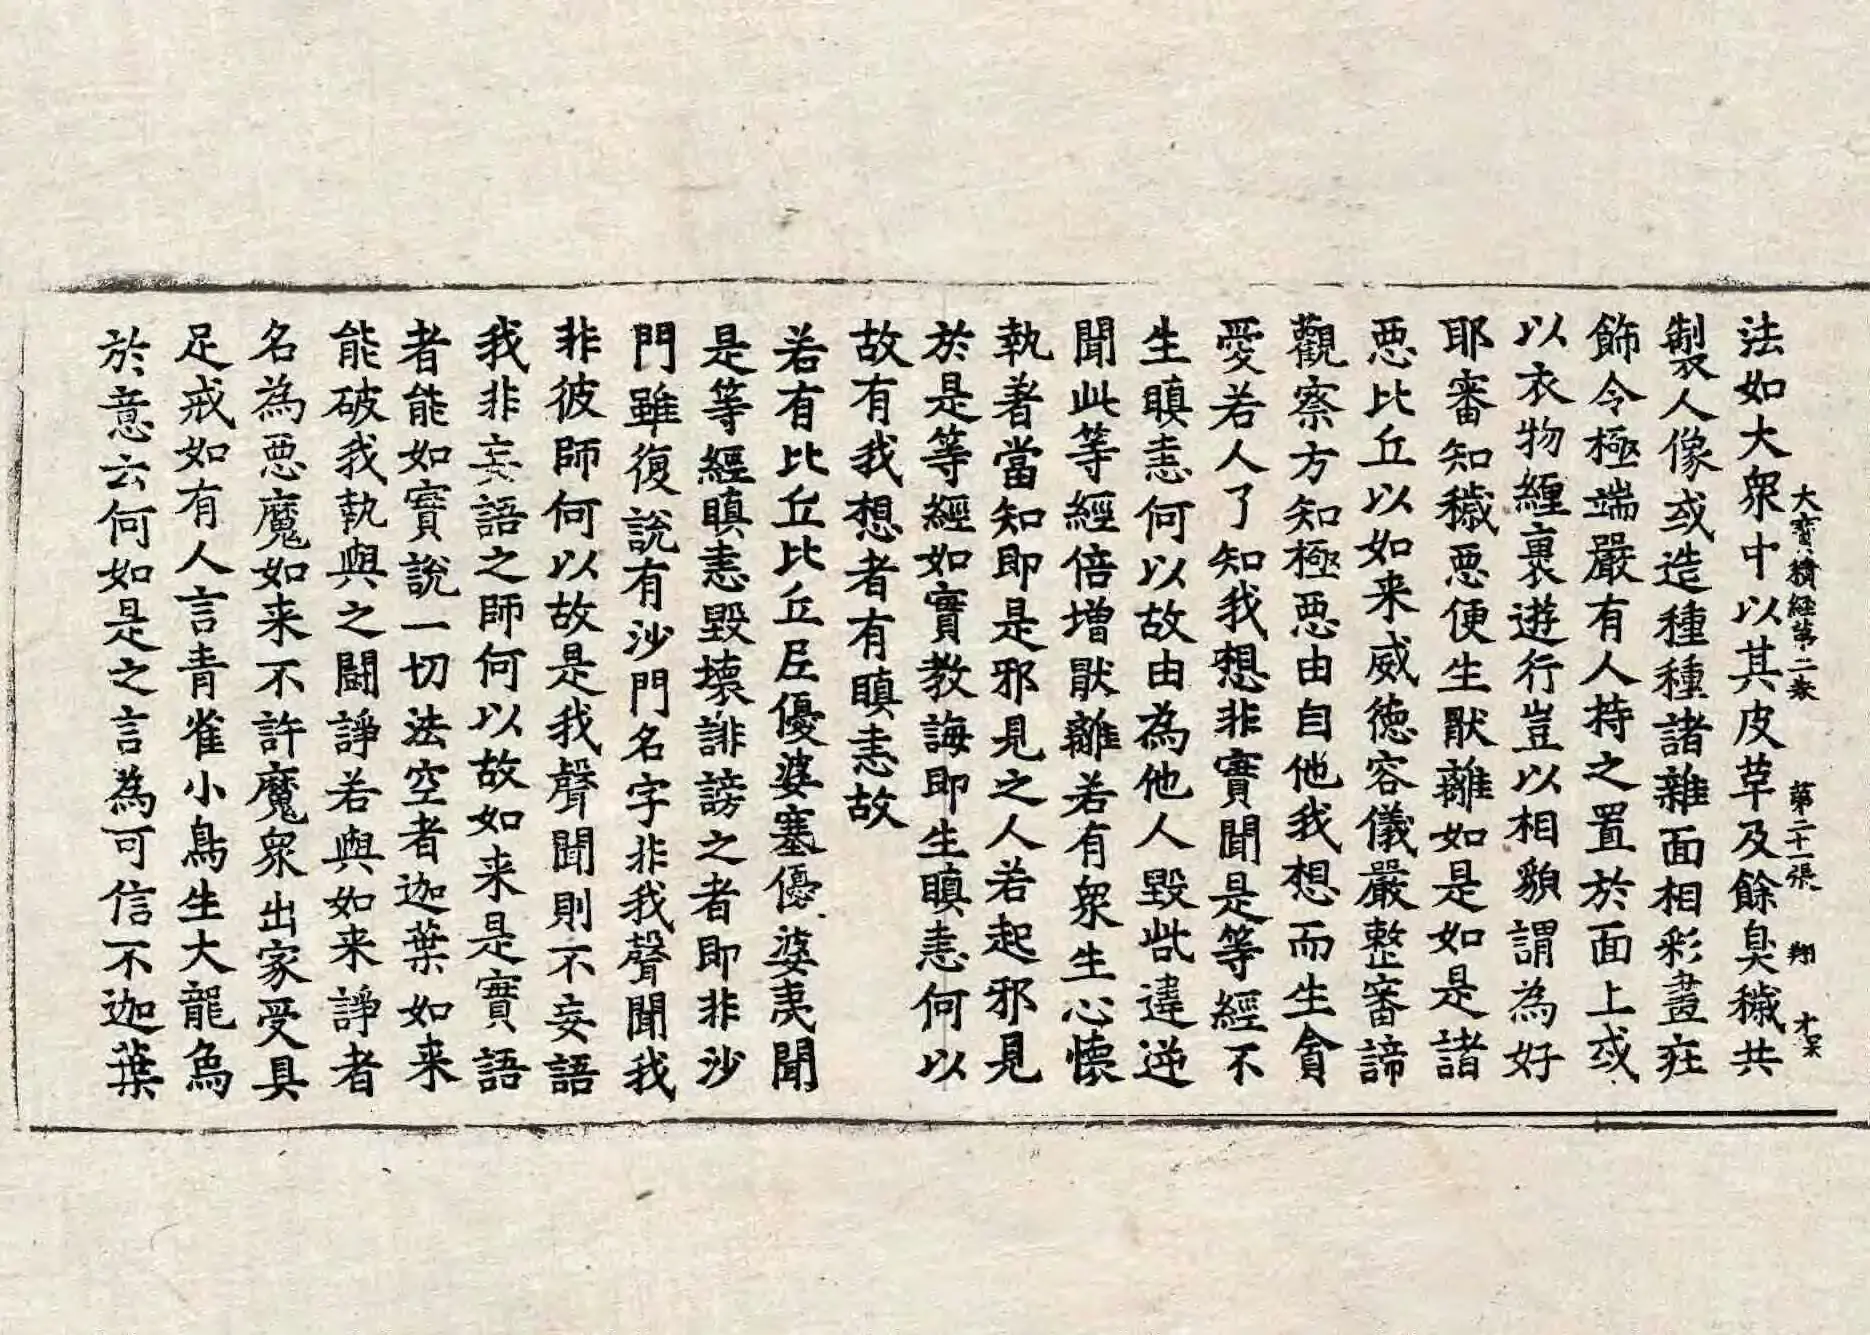 大寶積經第二卷　第二十一張　翔
法如大衆中以其皮草及餘臭穢共
製人像或造種種諸雜面相彩畫㽵
飾令極端嚴有人持之置於面上或
以衣物纏裹遊行豈以相貌謂為好
耶審知穢惡便生猒離如是如是諸
惡比丘以如来威徳容儀嚴整審諦
觀察方知極惡由自他我想而生貪
愛若人了知我想非實聞是等經不
生瞋恚何以故由為他人毀呰違逆
聞此等經倍增猒離若有衆生心懷
執著當知即是邪見之人若起邪見
於是等經如實教誨即生瞋恚何以
故有我想者有瞋恚故
若有比丘比丘尼優婆塞優婆夷聞
是等經瞋恚毀壞誹謗之者即非沙
門雖復說有沙門名字非我聲聞我
非彼師何以故是我聲聞則不妄語
我非妄語之師何以故如来是實語
者能如實說一切法空者迦葉如来
能破我執與之鬪諍若與如来諍者
名為惡魔如来不許魔衆出家受具
足戒如有人言青雀小鳥生大龍為
於意云何如是之言為可信不迦葉